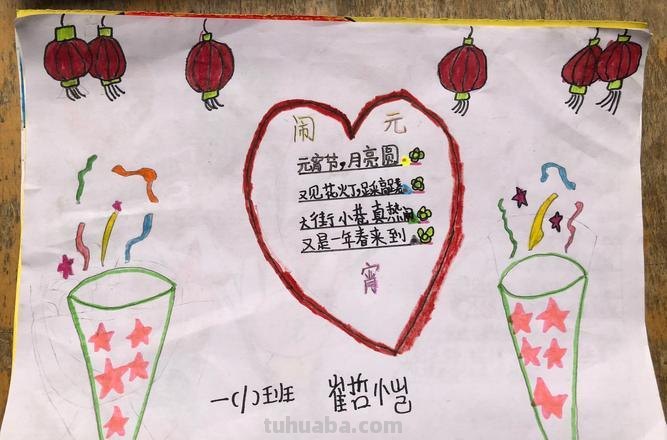 闹 元
元宵节，月亮圆
又见花灯,踩高跷
大街小巷真热闹
又是一年春来到
宵
一(1)班 崔哲恺
tuhuaba.com